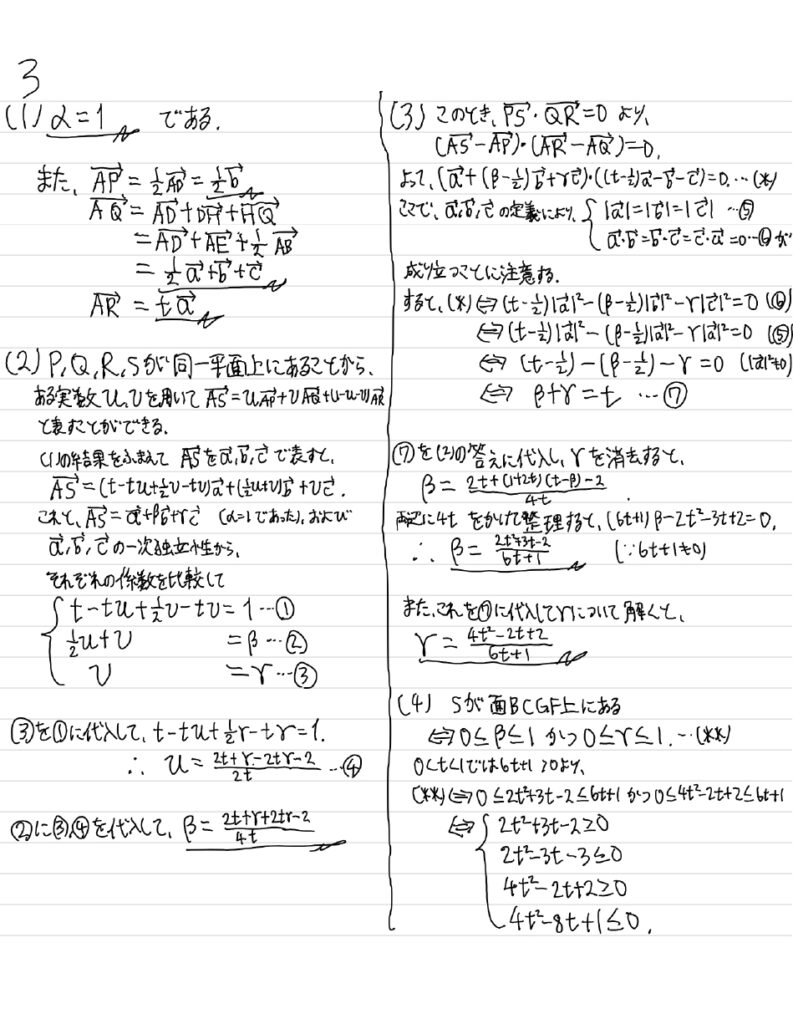 3
(1) α=1 である.
また、AP→ = 1/2 AD→ = 1/2 b→
AQ→ = AD→+DH→+HQ→
=AD→+AE→+1/2 AB→
= 1/2 a→+b→+c→
AR→ = t a→
(2) P,Q,R,Sが同一平面上にあることから、
ある実数u,vを用いて AS→=uAP→+vAQ→+(1-u-v)AR→
と表すことができる.
(1)の結果をふまえて AS→をa→,b→,c→で表すと,
AS→=(t-tu+1/2v-tv)a→+(1/2u+v)b→+vc→.
これと、AS→=a→+βb→+γc→ (α=1であった)、および
a→,b→,c→の一次独立性から、
それぞれの係数を比較して
t-tu+1/2v-tv=1…①
1/2u+v =β…②
v =γ…③
③を①に代入して, t-tu+1/2γ-tγ=1.
∴ u=(2t+γ-2tγ-2)/2t …④
②に③,④を代入して、β=(2t+γ+2tγ-2)/4t
(3) このとき、PS→・QR→=0 より,
(AS→-AP→)・(AR→-AQ→)=0.
よって, (a→+(β-1/2)b→+γc→)・((t-1/2)a→-b→-c→)=0.…(*)
ここで,a→,b→,c→の定義により, |a→|=|b→|=|c→| …⑤
a→・b→=b→・c→=c→・a→=0…⑥が
成り立つことに注意する.
すると,(*)⇔(t-1/2)|a→|²-(β-1/2)|b→|²-γ|c→|²=0 (⑥)
⇔(t-1/2)|a→|²-(β-1/2)|a→|²-γ|a→|²=0 (⑤)
⇔ (t-1/2)-(β-1/2)-γ=0 (|a→|²≠0)
⇔ β+γ=t …⑦
⑦を(2)の答えに代入し, γを消去すると,
β=(2t+(1+2t)(t-β)-2)/4t .
両辺に4tをかけて整理すると, (6t+1)β-2t²-3t+2=0.
∴ β=(2t²+3t-2)/(6t+1) (∵6t+1≠0)
また,これを⑦に代入してγについて解くと,
γ=(4t²-2t+2)/(6t+1)
(4) Sが面BCGF上にある
⇔0≤β≤1 かつ 0≤γ≤1.…(**)
0<t<1では6t+1>0より,
(**)⇔0≤2t²+3t-2≤6t+1かつ0≤4t²-2t+2≤6t+1
⇔ 2t²+3t-2≥0
2t²-3t-3≤0
4t²-2t+2≥0
4t²-8t+1≤0.